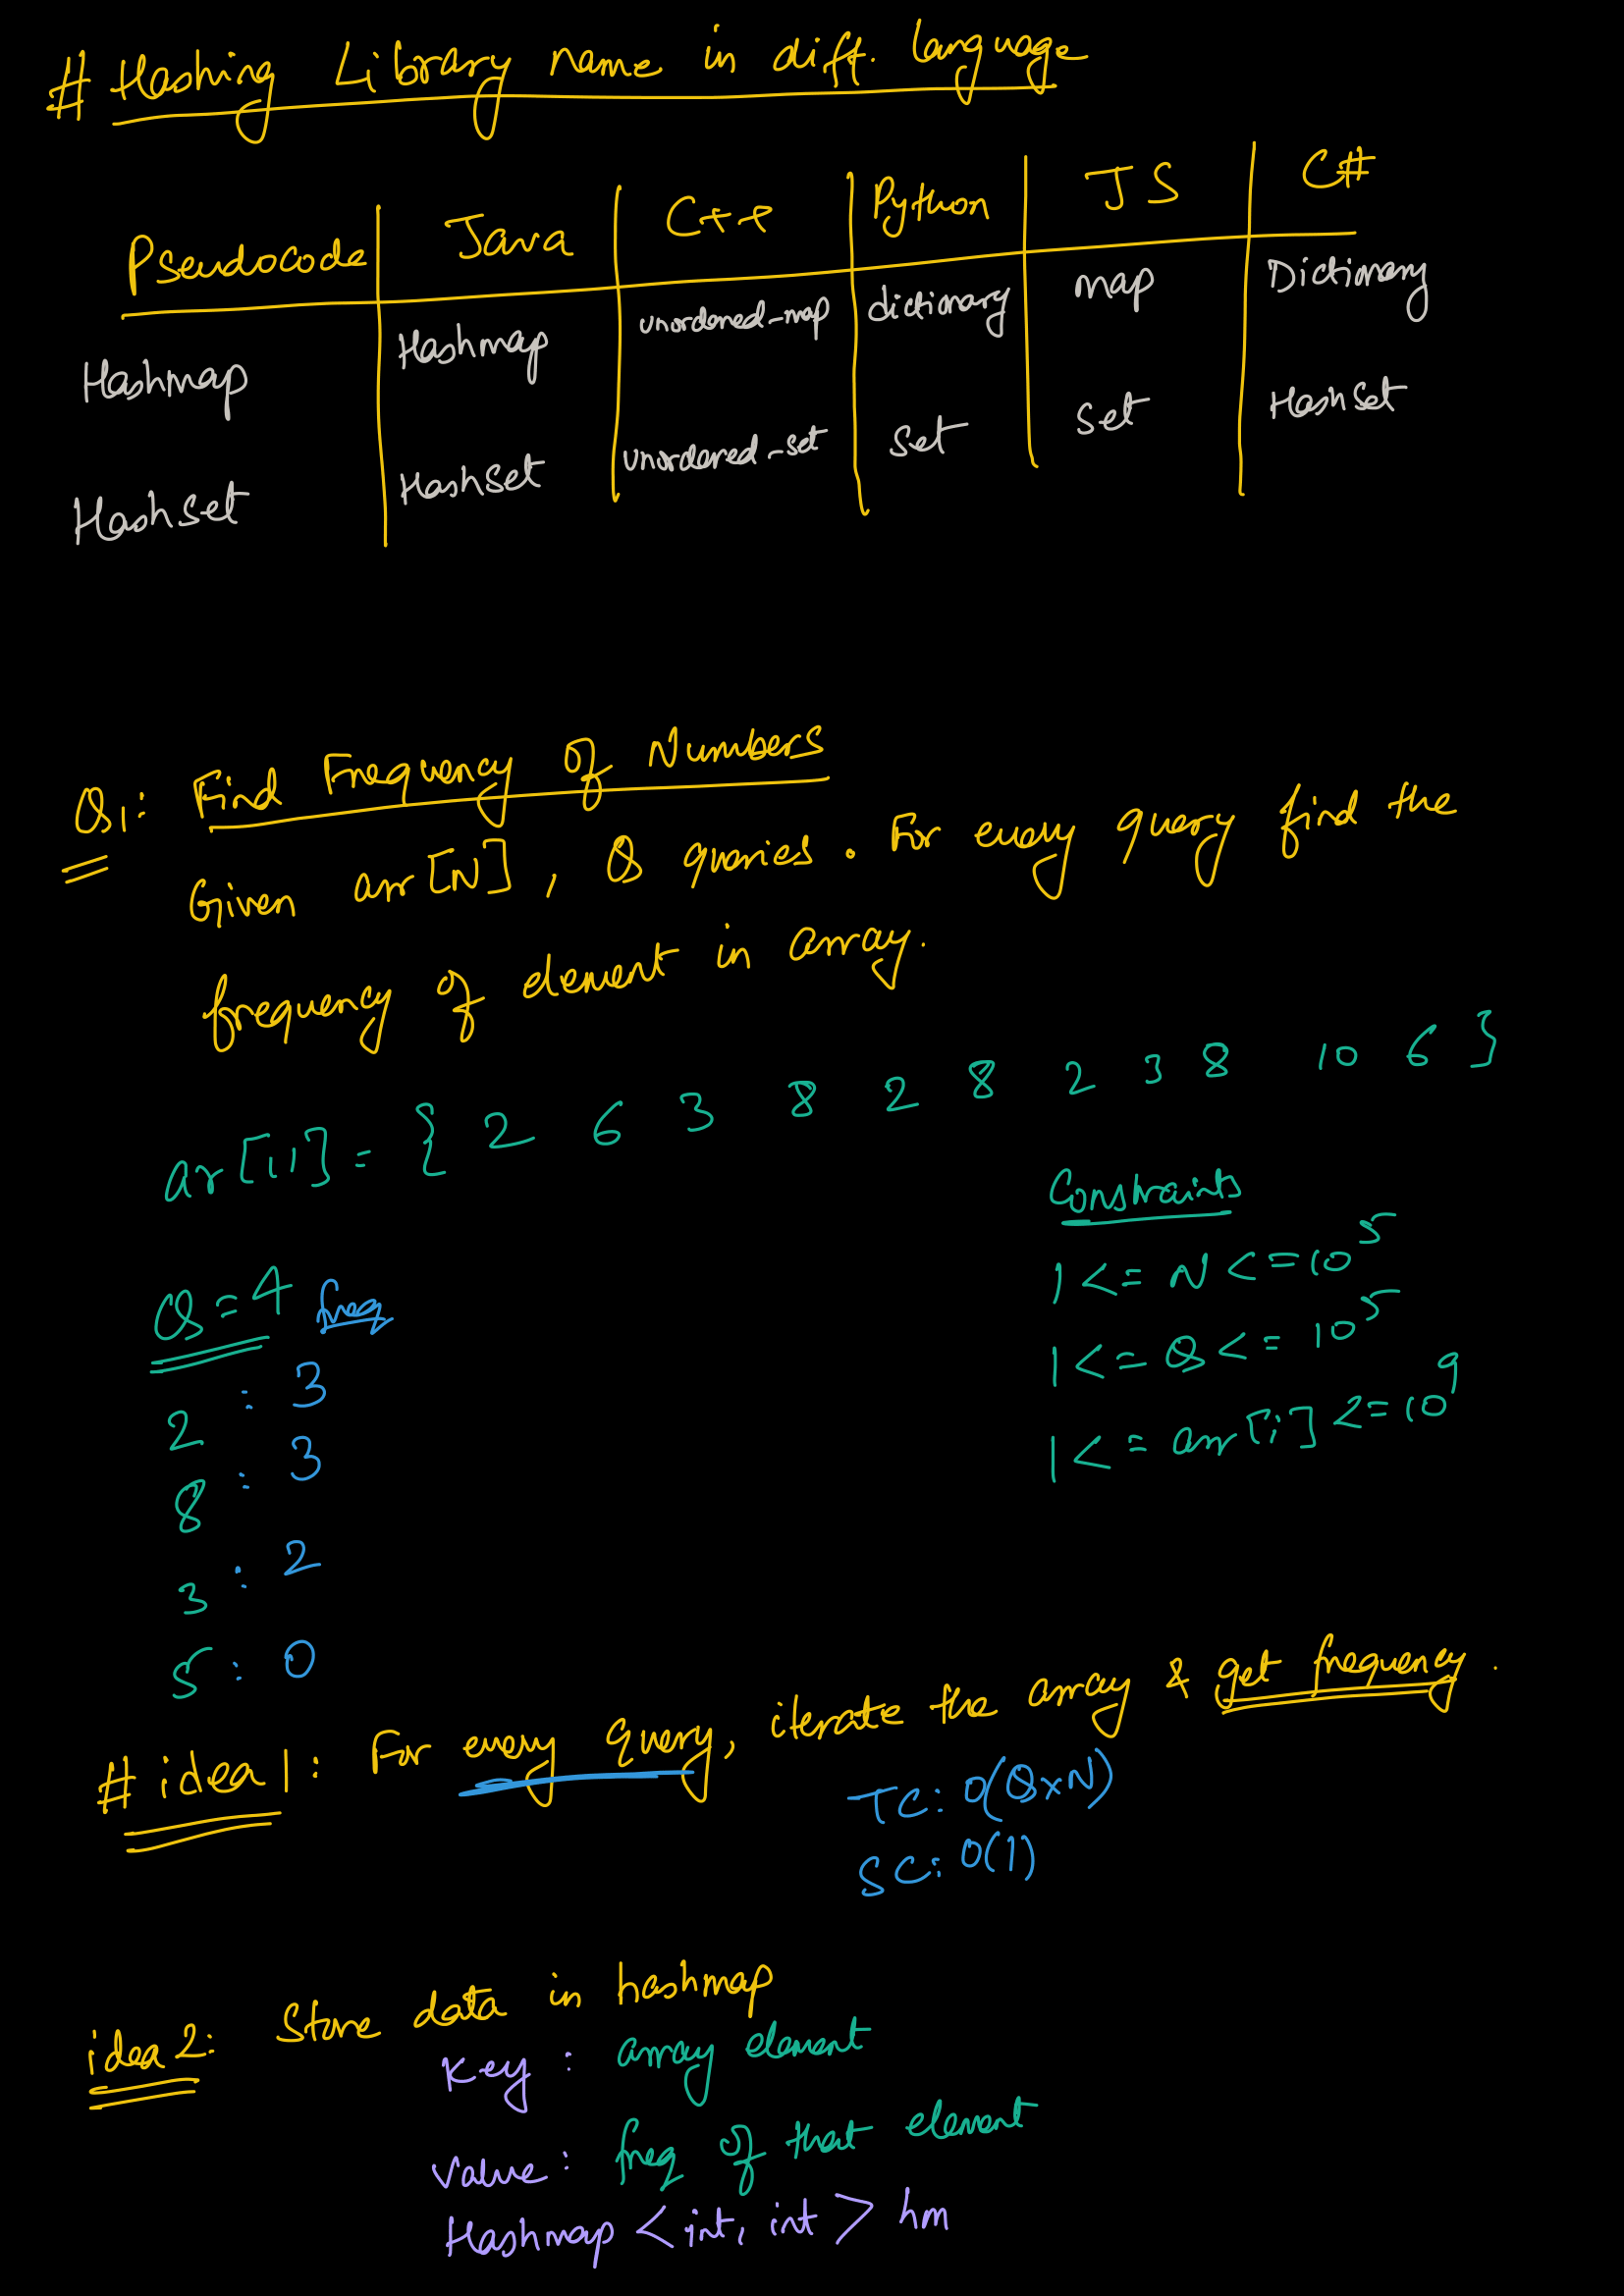 # Hashing Library name in diff. language
Pseudocode Java C++ Python JS C#
Hashmap Hashmap unordered_map dictionary map Dictionary
Hashset Hashset unordered_set set set Hashset
Q1: Find Frequency of Numbers
Given arr[N], Q queries. For every query find the
frequency of element in array.
ar[11] = { 2 6 3 8 2 8 2 3 8 10 6 }
Constraints
1 <= N <= 10^5
1 <= Q <= 10^5
1 <= arr[i] <= 10^9
Q=4 freq
2 : 3
8 : 3
3 : 2
5 : 0
# idea 1: For every query, iterate the array & get frequency.
TC: O(Q×N)
SC: O(1)
idea 2: Store data in hashmap
Key : array element
Value : freq of that element
Hashmap <int, int> hm